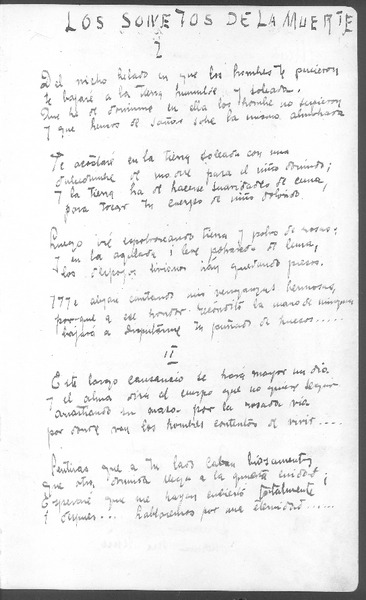 LOS SONETOS DE LA MUERTE
I
Del nicho helado en que los hombres te pusieron
te bajaré a la tierra humilde y soleada.
Que he de dormirme en ella los hombre no supieron
y que hemos de soñar sobre la misma almohada
Te acostaré en la tierra soleada con una
dulcedumbre de madre para el niño dormido;
y la tierra ha de hacerse suavidades de cuna,
para tocar tu cuerpo de niño dolorido.
Luego iré espolvoreando tierra y polvo de rosas;
y en la azulada i leve polvareda de luna,
los despojos livianos irán quedando presos.
Me alejaré cantando mis venganzas hermosas,
porque a ese hondor recóndito la mano de ninguna
bajará a disputarme tu puñado de huesos.....
II
Este largo cansancio se hará mayor un día
y el alma dirá al cuerpo que no quiere seguir
arrastrando su masa por la rosada vía
por donde van los hombres contentos de vivir.....
Sentirás que a tu lado cavan
que otra dormida llega a la quieta ciudad;
Esperaré que me hayan cubierto totalmente;
I después... hablaremos por una eternidad.....